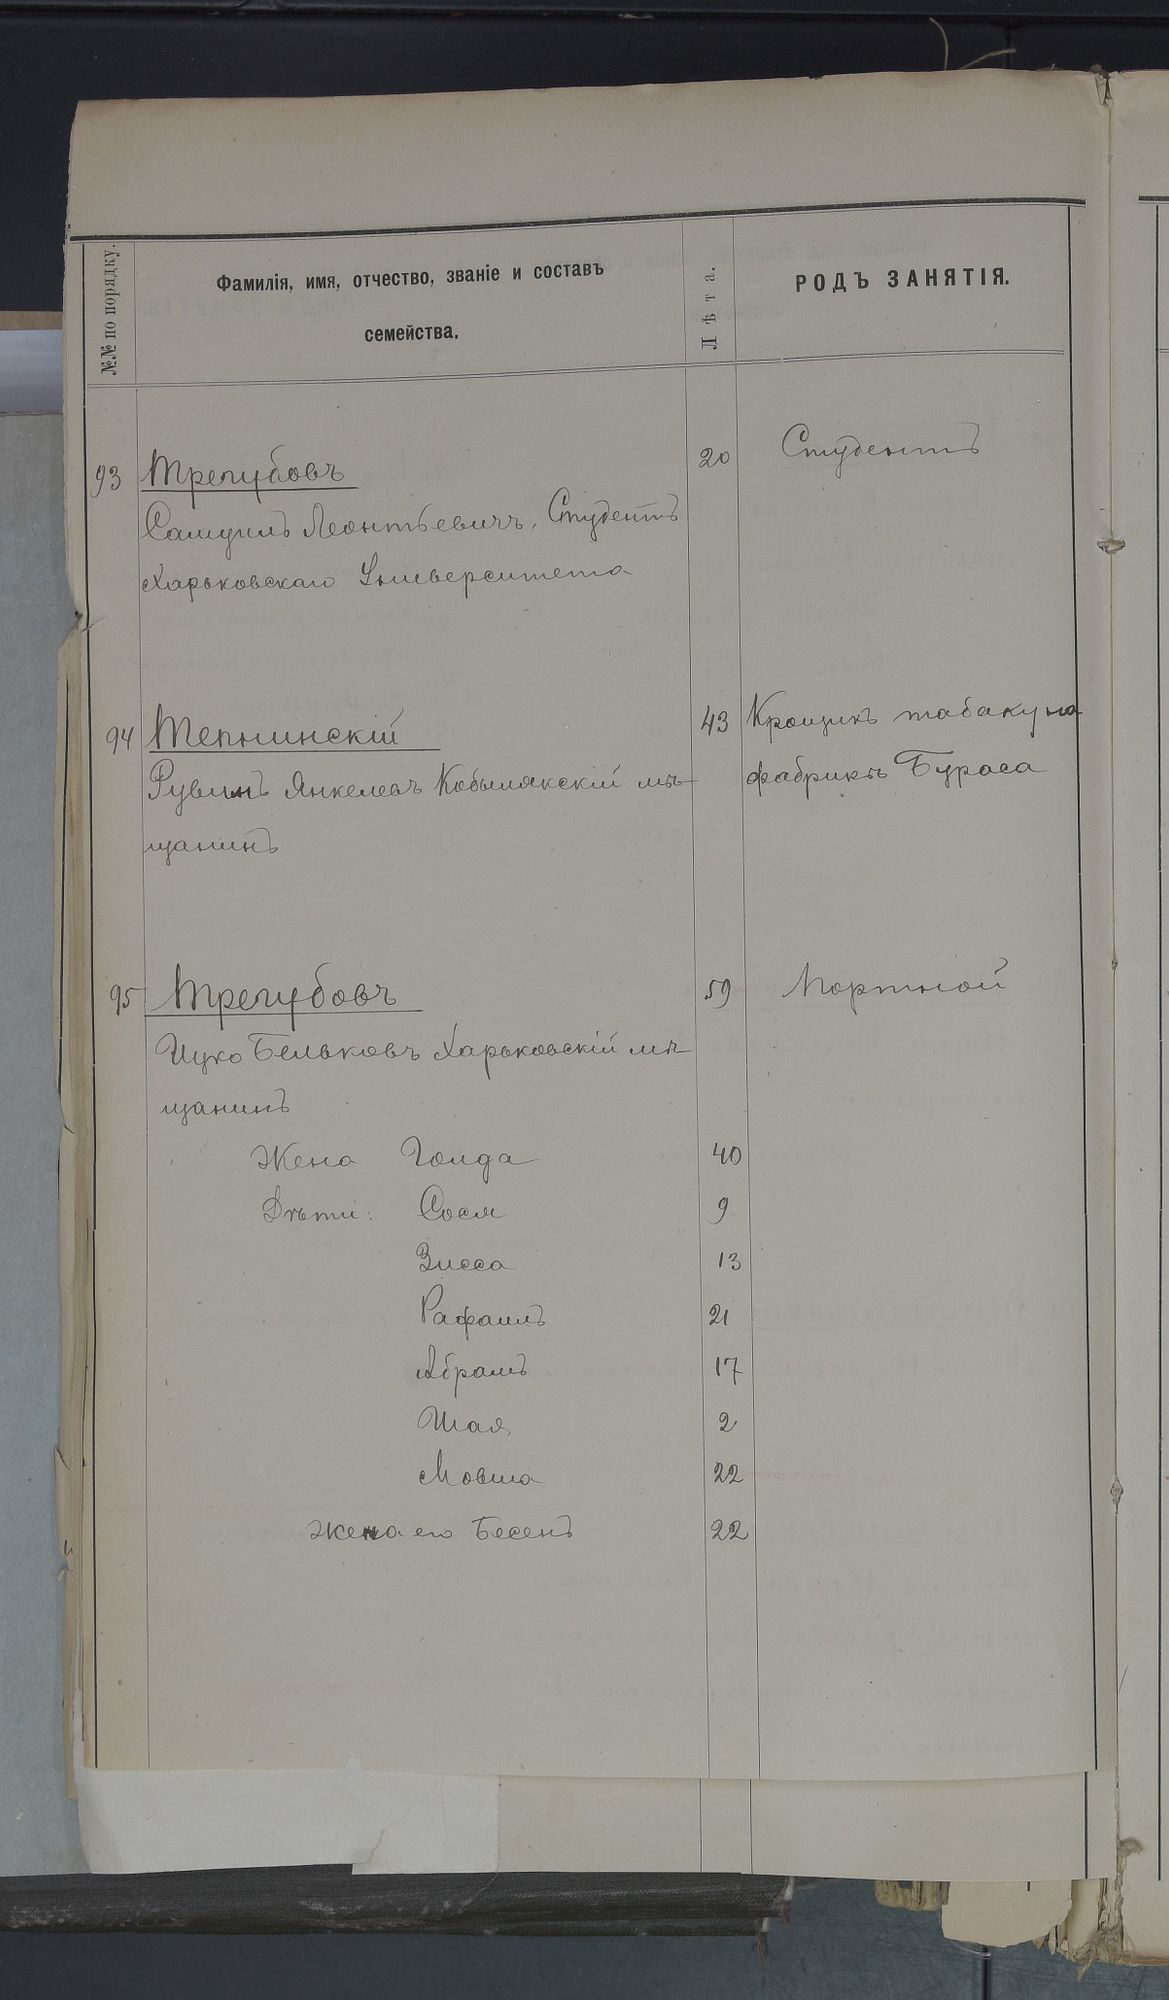 №№ по порядку.
Фамилія, имя, отчество, званіе и составъ
семейства.
Лѣта.
РОДЪ ЗАНЯТІЯ.
93 Трегубовъ 20 Студентъ
Самуилъ Леонтьевичъ, Студентъ
Харьковскаго Университета
94 Теплинскій 43 Крощикъ табаку на
Рувинъ Янкелевъ Кобылякскій мѣ- фабрикѣ Бураса
щанинъ
95 Трегубовъ 59 Портной
Ицко Бельковъ Харьковскій мѣ-
щанинъ
Жена Голда 40
Дѣти: Сося 9
Зисса 13
Рафаилъ 21
Абрамъ 17
Шая 2
Мовша 22
жена его Бесенъ 22